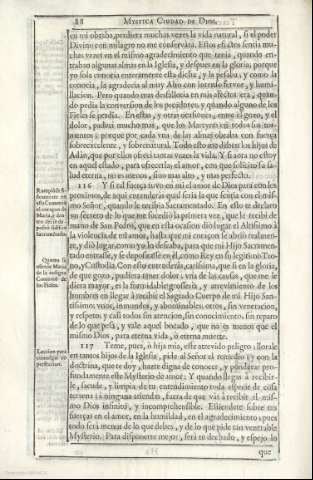 28 MYSTICA CIUDAD DE DIOS.
en mi obrado, perdiera muchas vezes la vida natural, si el poder
Divino con milagro no me conservara. Estos efectos sentia mu-
chas vezes en el mismo agradecimiento que tenia, quando en-
traban algunas almas en la Iglesia, y despues en la gloria: porque
yo sola conocia enteramente esta dicha, y la pesaba; y como la
conocia, la agradecia al muy Alto con intenso fervor, y humi-
llacion. Pero quando mas desfallecia en mis afectos era, quan-
do pedia la conversion de los pecadores, y quando alguno de los
Fieles se perdia. En estas, y otras ocasiones, entre el gozo, y el
dolor, padecí mucho mas, que los Martyres en todos sus tor-
mentos: porque por cada una de las almas obraba con fuerça
sobreexcelente, y sobrenatural. Todo esto me deben los hijos de
Adan, que por ellos ofrecí tantas vezes la vida. Y si aora no estoy
en aquel estado, para ofrecerla; el amor, con que solicito su sa-
lud eterna, no es menos, sino mas alto, y mas perfecto.
116 Y si tal fuerça tuvo en mi el amor de Dios para con los
proximos, de aqui entenderás qual seria la que sentia con el mis-
mo Señor, quando le recibia Sacramentado. En esto te declaro
un secreto de lo que me sucedió la primera vez, que le recibí de
mano de San Pedro; que en esta ocasion dió lugar el Altissimo à
la violencia de mi amor, hasta que mi coraçon se abrió realmen-
te, y dió lugar, como yo lo deseaba, para que mi Hijo Sacramen-
tado entrasse, y se depositasse en él, como Rey en su legitimo Tro-
no, y Custodia. Con esto entenderás, carissima, que si en la gloria,
de que gozo, pudiera tener dolor; una de las causas, que me le
diera mayor, es la formidable groseria, y atrevimiento de los
hombres en llegar à recibir el Sagrado Cuerpo de mi Hijo San-
tissimo; unos, inmundos, y abominables; otros, sin veneracion,
y respeto; y casi todos sin atencion, sin conocimiento, sin reparo
de lo que pesa, y vale aquel bocado, que no es menos que el
mismo Dios, para eterna vida, ò eterna muerte.
117 Teme, pues, ò hija mia, este atrevido peligro; llorale
en tantos hijos de la Iglesia, pide al Señor el remedio; y con la
doctrina, que te doy, hazte digna de conocer, y ponderar pro-
fundamente este Mysterio de amor: Y quando llegas à recibir-
le, sacude, y limpia de tu entendimiento toda especie de cosa
terrena; à ninguna atiendas, fuera de que vás à recibir al mis-
mo Dios infinito, y incomprehensible. Estiendete sobre tus
fuerças en el amor, en la humildad, en el agradecimiento; pues
todo será menos de lo que debes, y de lo que pide tan venerable
Mysterio. Para disponerte mejor, será tu dechado, y espejo lo
que